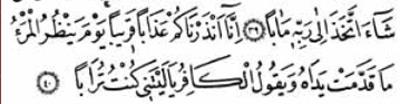 شَاءَ اتَّخَذَ إِلَىٰ رَبِّهِ مَاٰبًا ﴿٣٩﴾ اِنَّٓا اَنْذَرْنَاكُمْ عَذَابًا قَرٖيبًا يَوْمَ يَنْظُرُ الْمَرْءُ
مَا قَدَّمَتْ يَدَاهُ وَيَقُولُ الْكَافِرُ يَا لَيْتَنٖى كُنْتُ تُرَابًا ﴿٤٠﴾